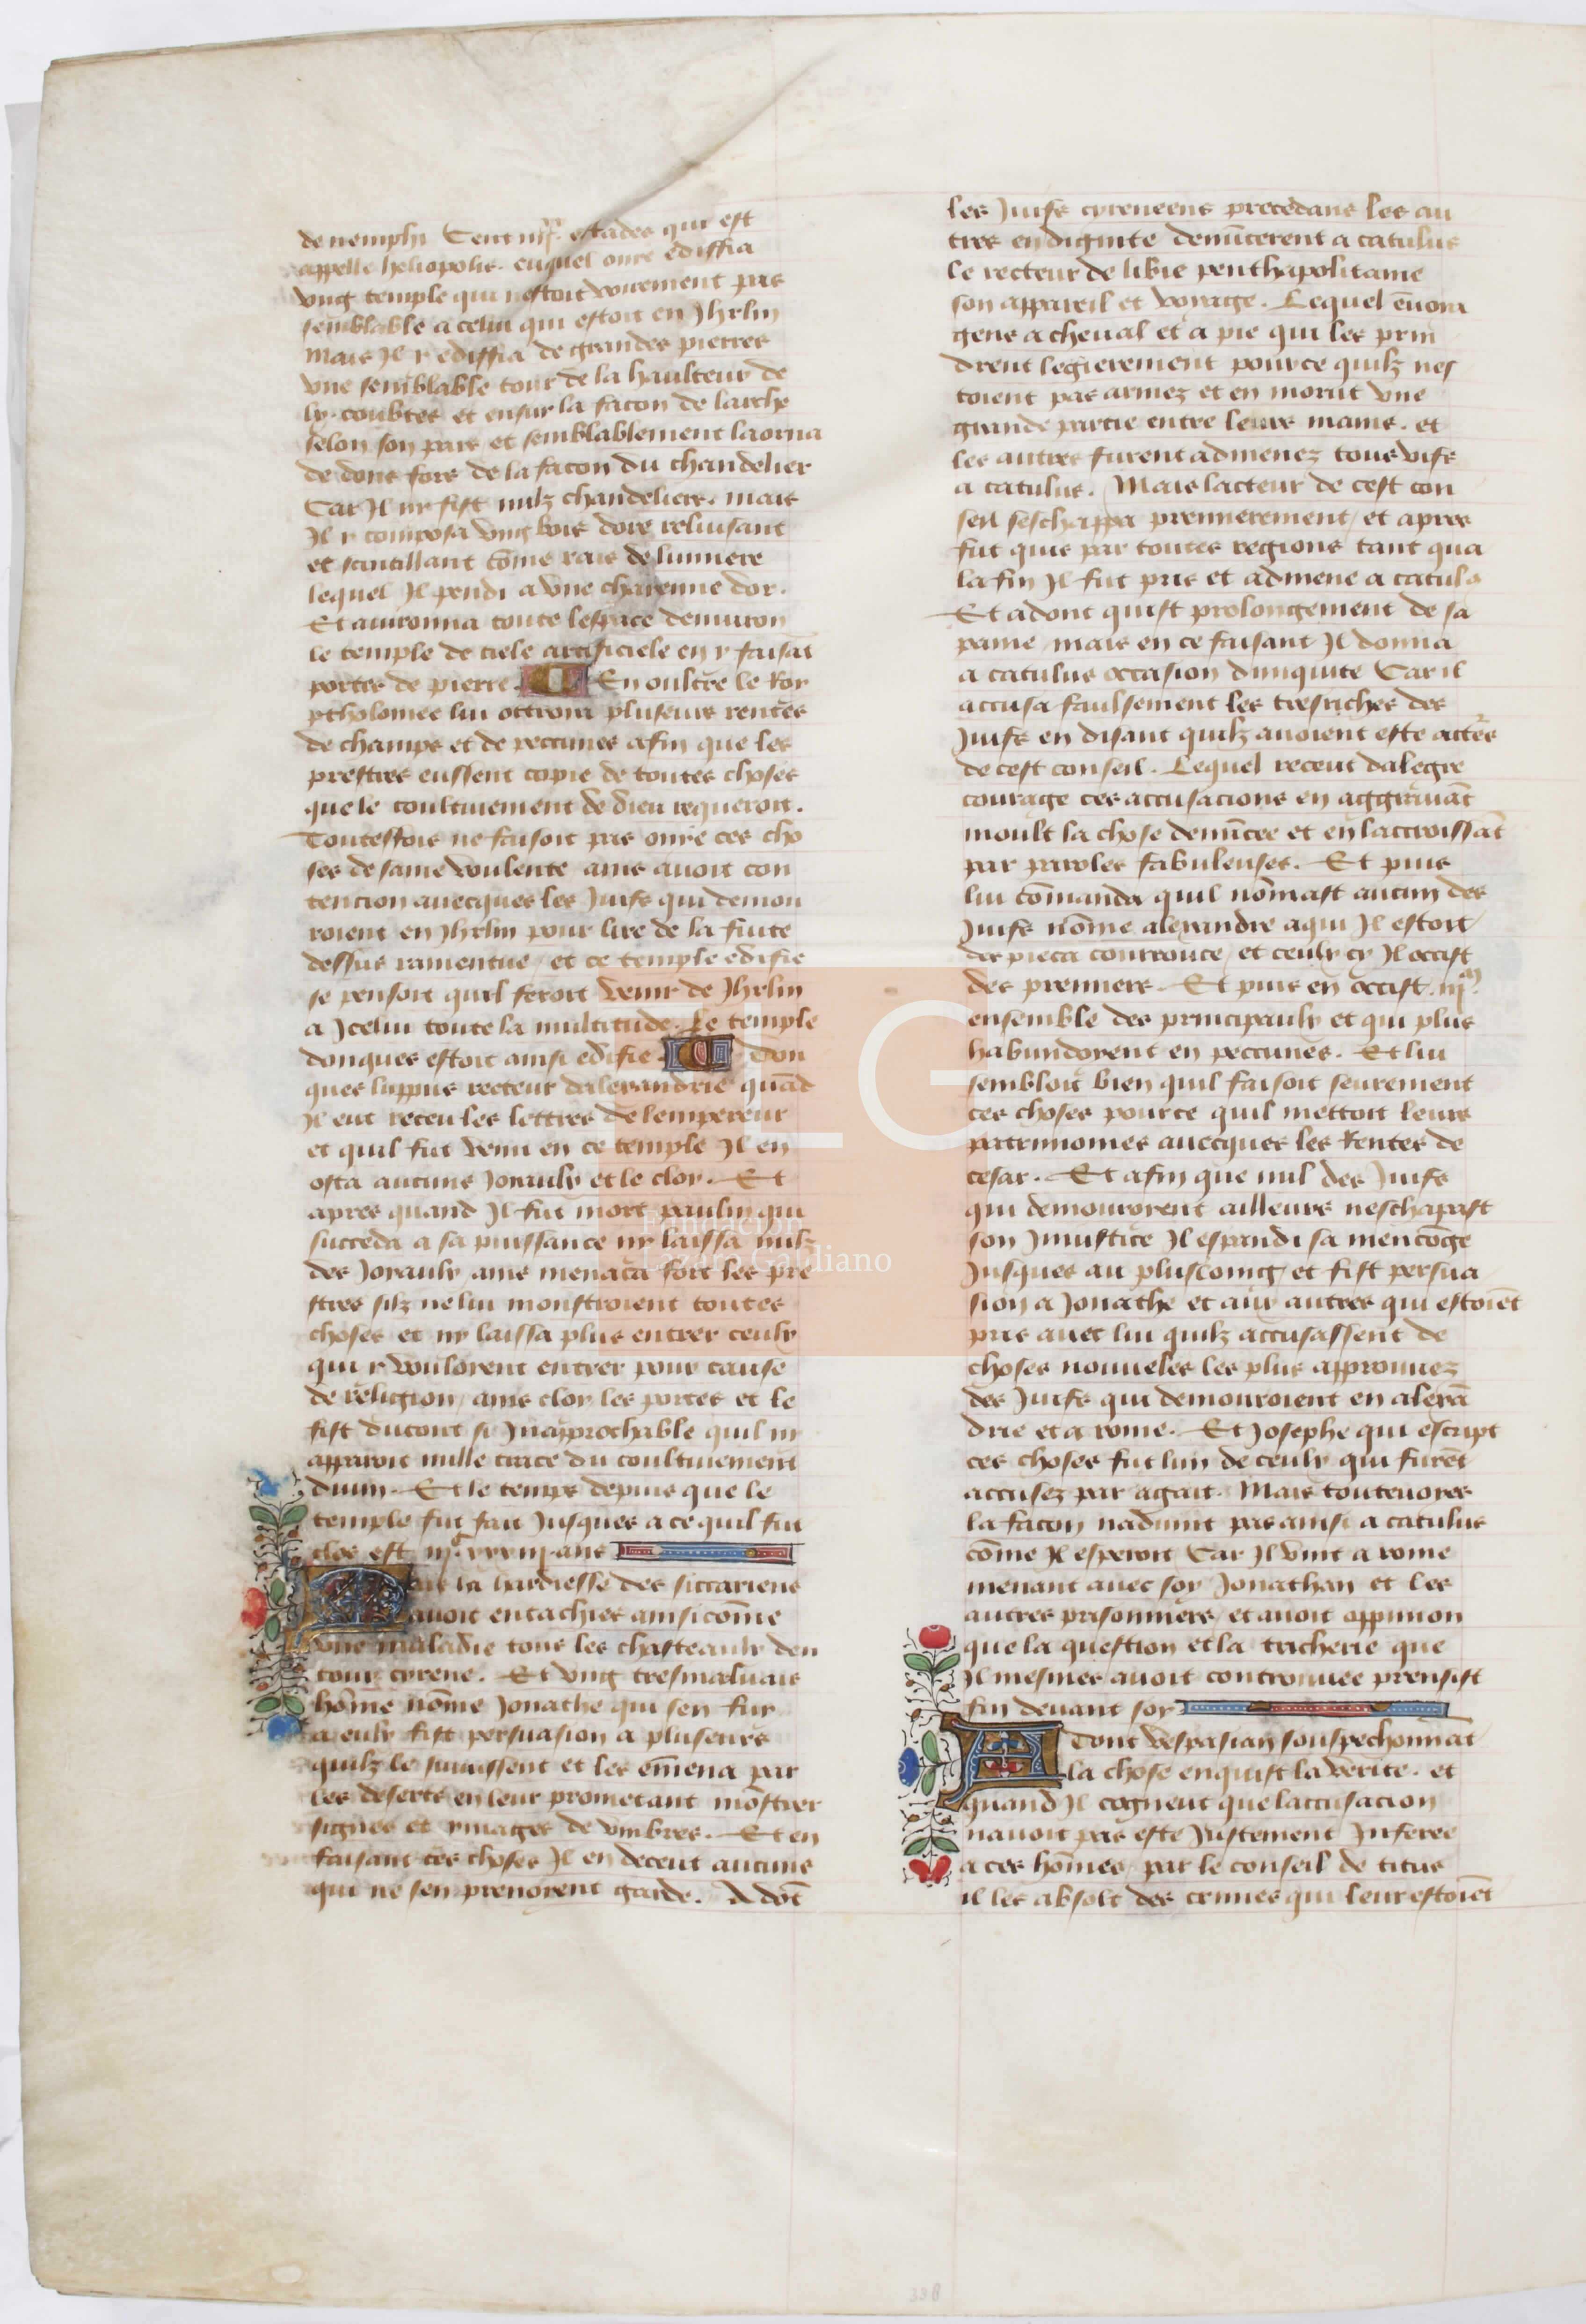 de nemphi Cent iiijxx estades qui est
appelle heliopolis. euquel onie ediffia
vng temple qui nestoit voirement pas
semblable a celui qui estoit en Jhrlm
mais Il y ediffia de grandes pierres
vne semblable tour de la haulteur de
lx. coubtes et ensur la facon de larche
selon son pais et semblablement laorna
de dons fors de la facon du chandelier
Car Il ny fist nulz chandeliers. mais
Il y composa vng bois dore reluisant
et scintillant cōme rais de lumiere
lequel Il pendi a vne chayenne dor.
Et auironna toute lespace denuiron
le temple de tiele artificiele en y faisāt
portes de pierre. En oultre le Roy
ptholomee lui ottroia pluseurs rentes
de champs et de peccunes afin que les
prestres eussent copie de toutes choses
que le coultiuement de dieu requeroit.
Toutesfois ne faisoit pas onie ces cho
ses de saine voulente ains auoit con
tencion auecques les Juifs qui demou
roient en Jhrlm pour lire de la fuite
dessus ramentue / et ce temple edifie
se pensoit quil feroit venir de Jhrlm
a Icelui toute la multitude. Le temple
donques estoit ainsi edifie. Don
ques luppus recteur dalexandrie quād
Il eut receu les lettres de lempereur
et quil fut venu en ce temple Il en
osta aucuns Joyaulx et le cloy. Et
apres quand Il fut mort paulin qui
succeda a sa puissance ny laissa nulz
des Joyaulx / ains menaca fort les pre
stres silz ne lui monstroient toutes
choses et ny laissa plus entrer ceulx
qui y vouloient entrer pour cause
de religion / ains cloy les portes et le
fist du tout si Inapprochable quil ny
apparoit nulle trace du coultiuement
diuin. Et le temps depuis que le
temple fut fait Jusques a ce quil fut
clos est iijc xxxiij. ans
la hardiesse des siccariens
auoit entachies ainsi cōme
vne maladie tous les chasteaulx den
tour cyrene. Et vng tresmaluais
hōme nōme Jonathe qui sen fuy
a eulx fist persuasion a pluseurs
quilz le suiuissent et les ēmena par
les deserts en leur prometant mōstrer
signes et ymages de vmbres. Et en
faisant ces choses Il en deceut aucuns
qui ne sen prenoient garde. A dōt
les Juifs cyreneens precedans les au
tres en dignite denūcerent a catulus
le recteur de libie penthapolitaine
son appareil et voyage. Lequel ēuoia
gens a cheual et a pie qui les prin
drent legierement pource quilz nes
toient pas armez et en morut vne
grande partie entre leurs mains. et
les autres furent admenez tous vifs
a catulus. Mais lacteur de cest con
seil seschappa premierement / et apres
fut quis par toutes regions tant qua
la fin Il fut pris et admene a catulꝯ
Et adont quist prolongement de sa
paine / mais en ce faisant Il donna
a catulus occasion diniquite Car il
accusa faulsement les tresriches des
Juifs en disant quilz auoient este actēs
de cest conseil. Lequel receut dalegre
courage ces accusacions en aggrauāt
moult la chose denūcee et en laccroissāt
par paroles fabuleuses. Et puis
lui cōmanda quil nōmast aucun des
Juifs nōme alexandre a qui Il estoit
des pieca courrouce / et ceulx cy Il occist
des premiers. Et puis en occist. iijm.
ensemble des principaulx et qui plus
habundoient en peccunes. Et lui
sembloit bien quil faisoit seurement
ces choses pource quil mettoit leurs
patrimoines auecques les Rentes de
cesar. Et afin que nul des Juifs
qui demouroient ailleurs neschapast
son Iniustice Il espandi sa mencōge
Jusques au plus loing / et fist persua
sion a Jonathe et aux autres qui estoiēt
pris auec lui quilz accusassent de
choses nouueles les plus approuuez
des Juifs qui demouroient en alexā
drie et a rome. Et Josephe qui escript
ces choses fut lun de ceulx qui furēt
accusez par agait. Mais touteuoyes
la facon naduint pas ainsi a catulus
cōme Il esperoit Car Il vint a rome
menant auec soy Jonathan et les
autres prisonniers / et auoit oppinion
que la question et la tricherie que
Il mesmes auoit controuuee prensist
fin deuant soy
A Dont vespasian souspechonnāt
la chose enquist la verite. et
quand Il cogneut que laccusacion
nauoit pas este Justement Inferee
a ces hōmes / par le conseil de titus
il les absolt des crimes qui leur estoiēt
FLG
Fundación
Lázaro Galdiano
338